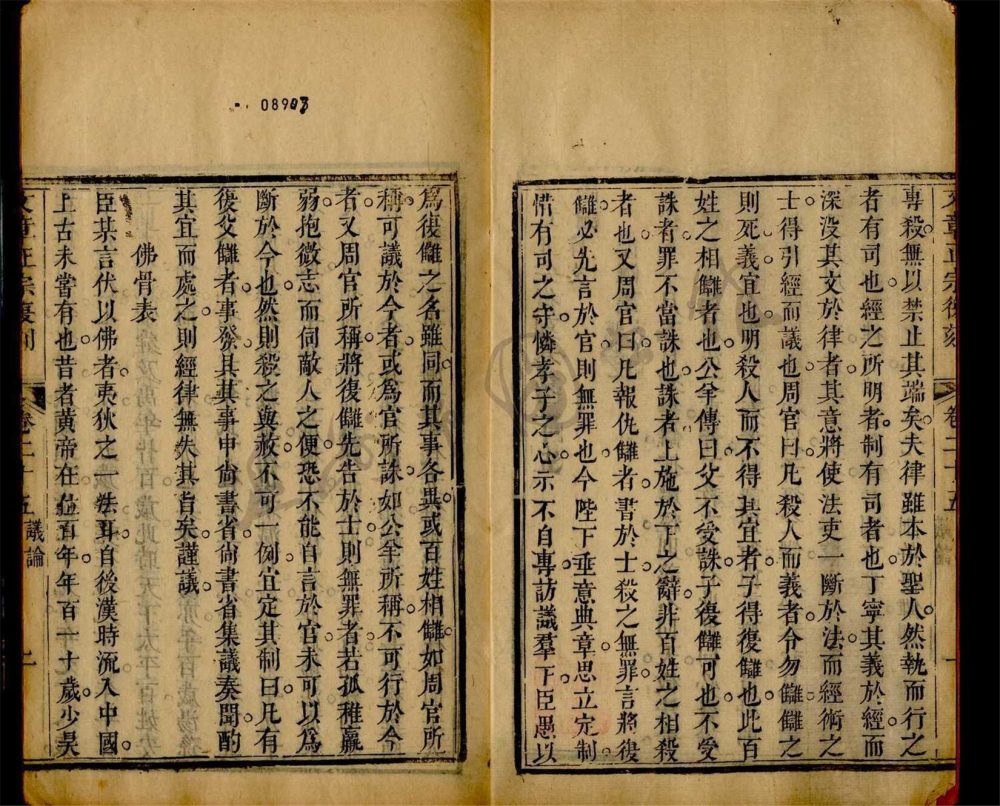 08903
文章正宗復刻
卷二十五
議論
一
專殺無以禁止其端矣夫律雖本於聖人然執而行之
者有司也經之所明者制有司者也丁寧其義於經而
深沒其文於律者其意將使法吏一斷於法而經術之
士得引經而議也周官曰凡殺人而義者令勿讎讎之
則死義宜也明殺人而不得其宜者子得復讎也此百
姓之相讎者也公羊傳曰父不受誅子復讎可也不受
誅者罪不當誅也誅者上施於下之辭非百姓之相殺
者也又周官曰凡報仇讎者書於士殺之無罪言將復
讎必先言於官則無罪也今陛下垂意典章思立定制
惜有司之守憐孝子之心示不自專訪議羣下臣愚以
為復讎之名雖同而其事各異或百姓相讎如周官所
稱可議於今者或為官所誅如公羊所稱不可行於今
者又周官所稱將復讎先告於士則無罪者若孤稚羸
弱抱微志而伺敵人之便恐不能自言於官未可以為
斷於今也然則殺之與赦不可一例宜定其制曰凡有
復父讎者事發具其事申尚書省尚書省集議奏聞酌
其宜而處之則經律無失其旨矣謹議
佛骨表
臣某言伏以佛者夷狄之一法耳自後漢時流入中國
上古未嘗有也昔者黃帝在位百年年百一十歲少昊
文章正宗復刻
卷二十五
議論
二